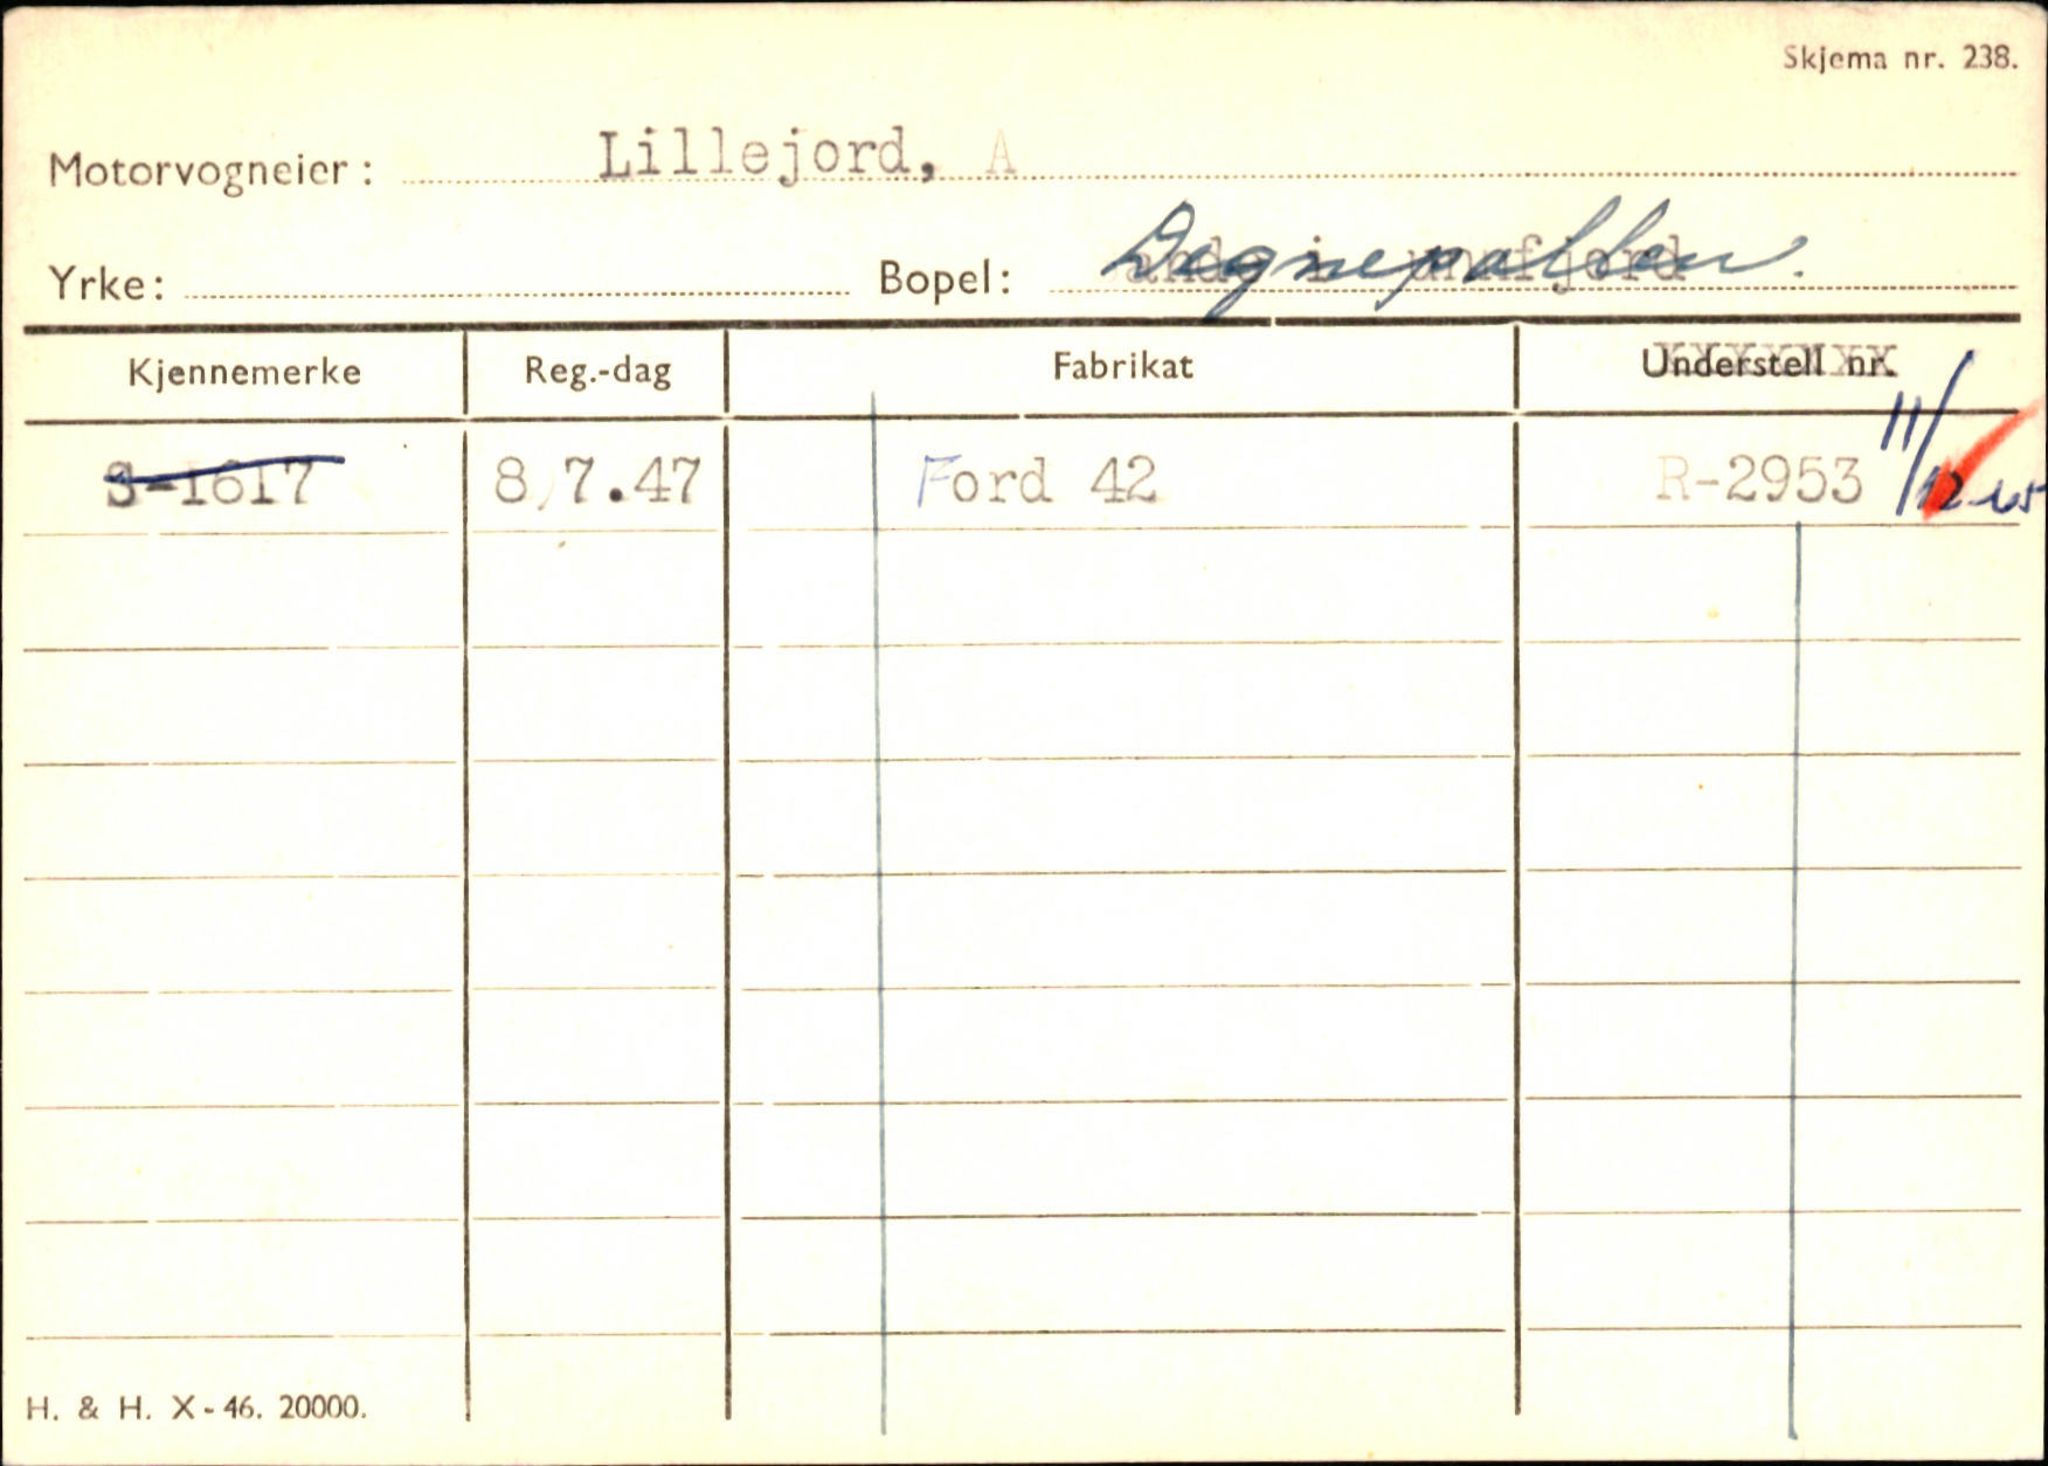 Skjema nr. 238.
Motorvogneier: Lillejord, A
Yrke: Bopel: Degnepollen.
Kjennemerke Reg.-dag Fabrikat Understell nr.
S-1617 8/7.47 Ford 42 R-2953 11/12-65
H. & H. X-46. 20000.